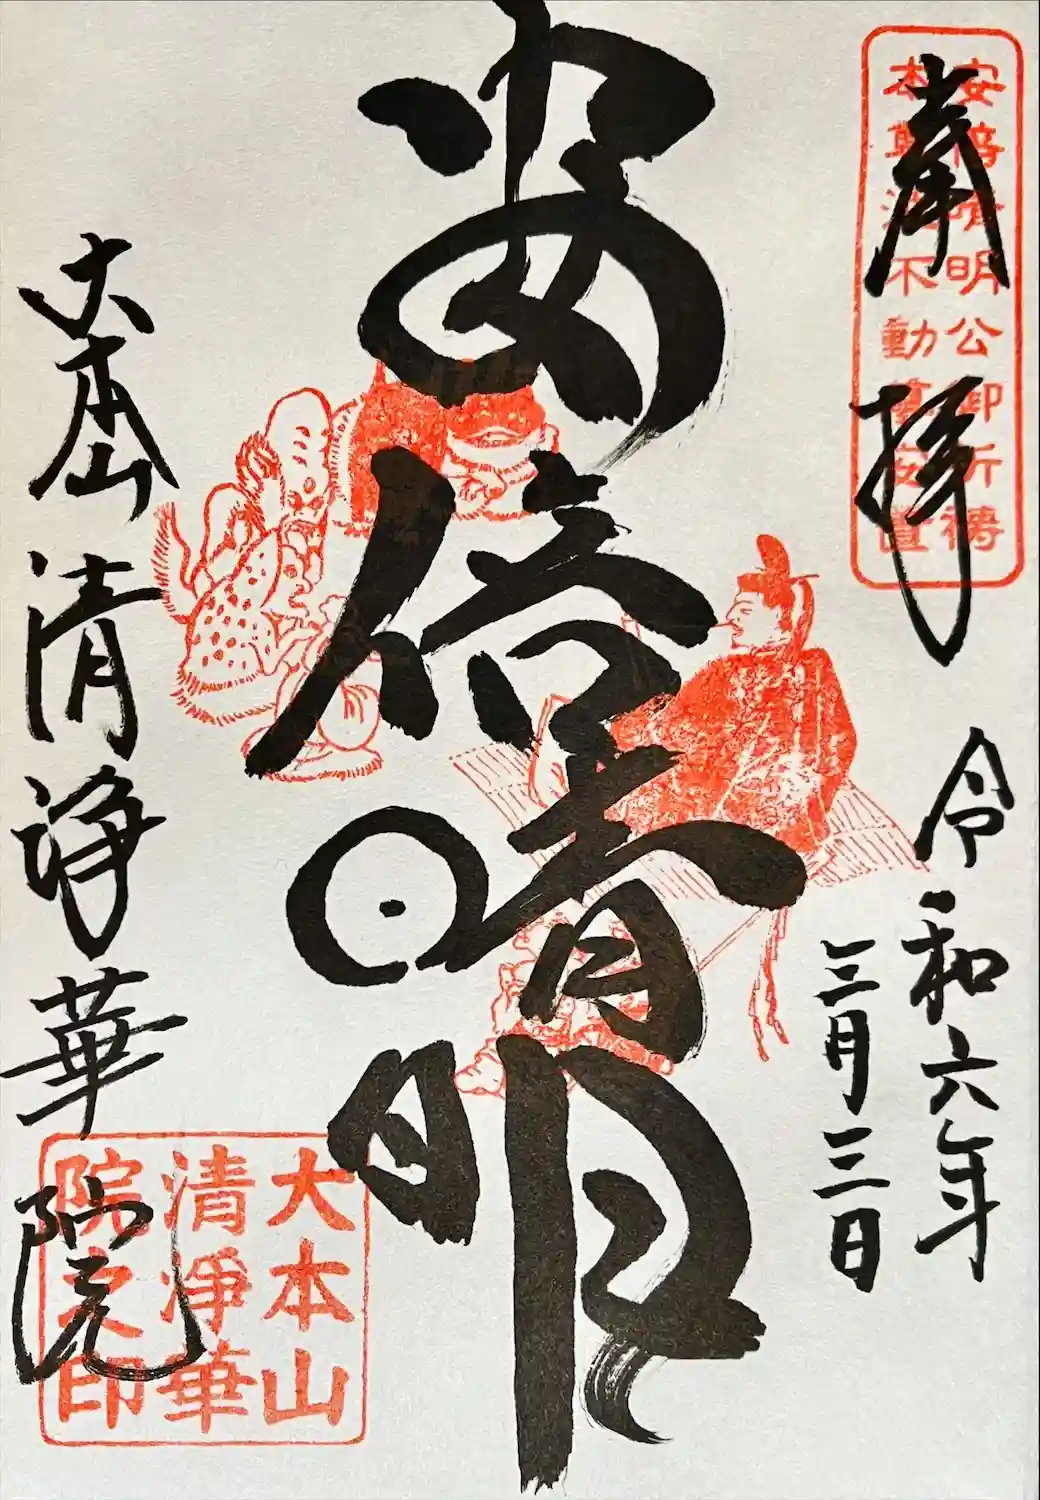 奉拝
安倍晴明公御祈祷
本 不動尊安置
令和六年
三月三日
安倍晴明
大本山 清浄華院
大本山
清淨華
院之印